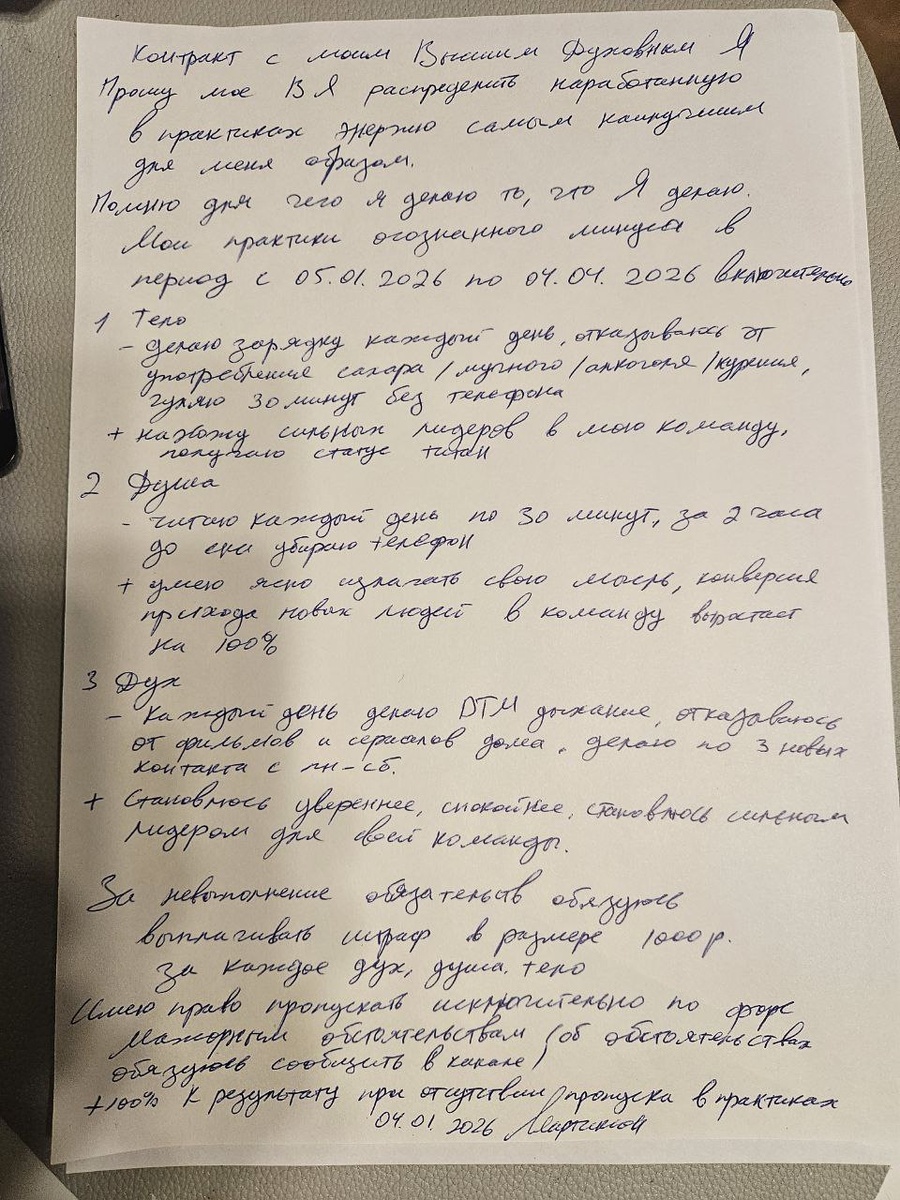 Контракт с моим Высшим Духовным Я
Прошу мое ВЯ распределить наработанную
в практиках энергию самым наилучшим
для меня образом.
Помню для чего я делаю то, что Я делаю.
Мои практики осознанного минуса в
период с 05.01.2026 по 04.04.2026 включительно
1 Тело
- делаю зарядку каждый день, отказываюсь от
употребления сахара/мучного/алкоголя/курения,
гуляю 30 минут без телефона
+ нахожу сильных лидеров в мою команду,
получаю статус титан
2 Душа
- читаю каждый день по 30 минут, за 2 часа
до сна убираю телефон
+ умею ясно излагать свою мысль, конверсия
прихода новых людей в команду вырастает
на 100%
3 Дух
- Каждый день делаю DTM дыхание, отказываюсь
от фильмов и сериалов дома, делаю по 3 новых
контакта с пн-сб.
+ Становлюсь увереннее, спокойнее, становлюсь сильным
лидером для своей команды.
За невыполнение обязательств обязуюсь
выплачивать штраф в размере 1000 р.
за каждое дух, душа, тело
Имею право пропускать исключительно по форс
мажорным обстоятельствам (об обстоятельствах
обязуюсь сообщить в канале)
+100% к результату при отсутствии пропуска в практиках
04.01.2026